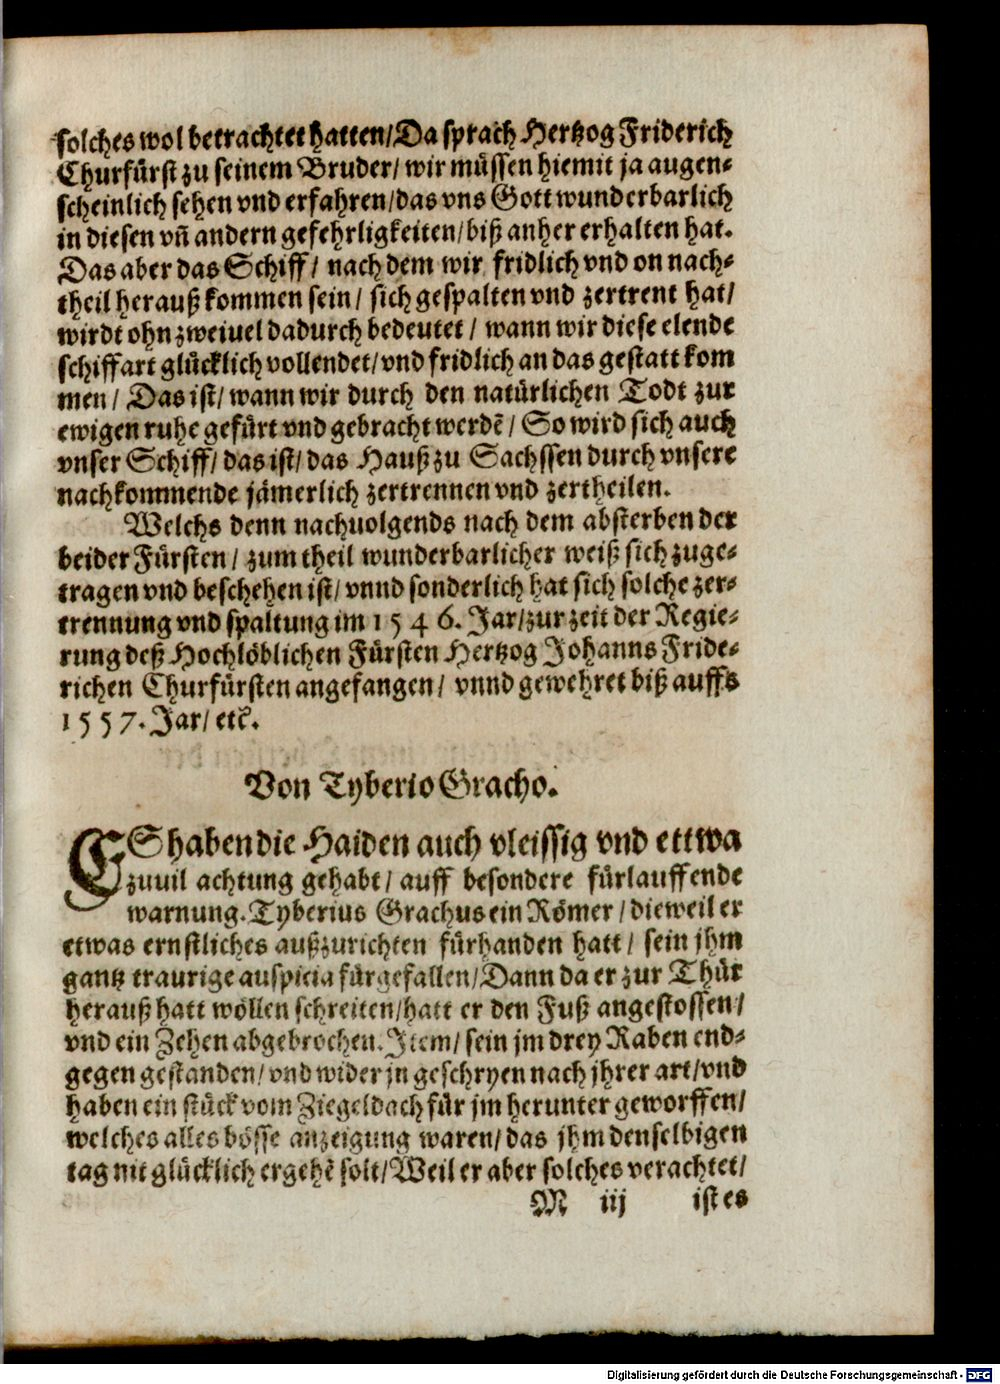 solches wol betrachtet hatten/Da sprach Hertzog Friderich
Churfürst zu seinem Bruder/ wir müssen hiemit ja augen-
scheinlich sehen vnd erfahren/das vns Gott wunderbarlich
in diesen vñ andern gefehrligkeiten/biß anher erhalten hat.
Das aber das Schiff/ nach dem wir fridlich vnd on nach-
theil herauß kommen sein/ sich gespalten vnd zertrent hat/
wirdt ohn zweiuel dadurch bedeutet/ wann wir diese elende
schiffart glücklich vollendet/vnd fridlich an das gestatt kom
men/ Das ist/ wann wir durch den natürlichen Todt zur
ewigen ruhe gefürt vnd gebracht werdē/ So wird sich auch
vnser Schiff/ das ist/ das Hauß zu Sachssen durch vnsere
nachkommende jämerlich zertrennen vnd zertheilen.
Welchs denn nachuolgends nach dem absterben der
beider Fürsten/ zum theil wunderbarlicher weiß sich zuge-
tragen vnd beschehen ist/ vnnd sonderlich hat sich solche zer-
trennung vnd spaltung im 1546. Jar/zur zeit der Regie-
rung deß Hochlöblichen Fürsten Hertzog Johanns Fride-
richen Churfürsten angefangen/ vnnd gewehret biß auffs
1557. Jar/ etc.
Von Tyberio Gracho.
ES haben die Haiden auch vleissig vnd ettwa
zuuil achtung gehabt/ auff besondere fürlauffende
warnung. Tyberius Grachus ein Römer/ dieweil er
etwas ernstliches außzurichten fürhanden hatt/ sein jhm
gantz traurige auspicia fürgefallen/Dann da er zur Thür
herauß hatt wöllen schreiten/hatt er den Fuß angestossen/
vnd ein Zehen abgebrochen. Item/ sein jm drey Raben end-
gegen gestanden/ vnd wider jn geschryen nach jhrer art/vnd
haben ein stück vom Ziegeldach für jm herunter geworffen/
welches alles bösse anzeigung waren/ das jhm denselbigen
tag nit glücklich ergehē solt/Weil er aber solches verachtet/
M iij ist es
Digitalisierung gefördert durch die Deutsche Forschungsgemeinschaft - DFG